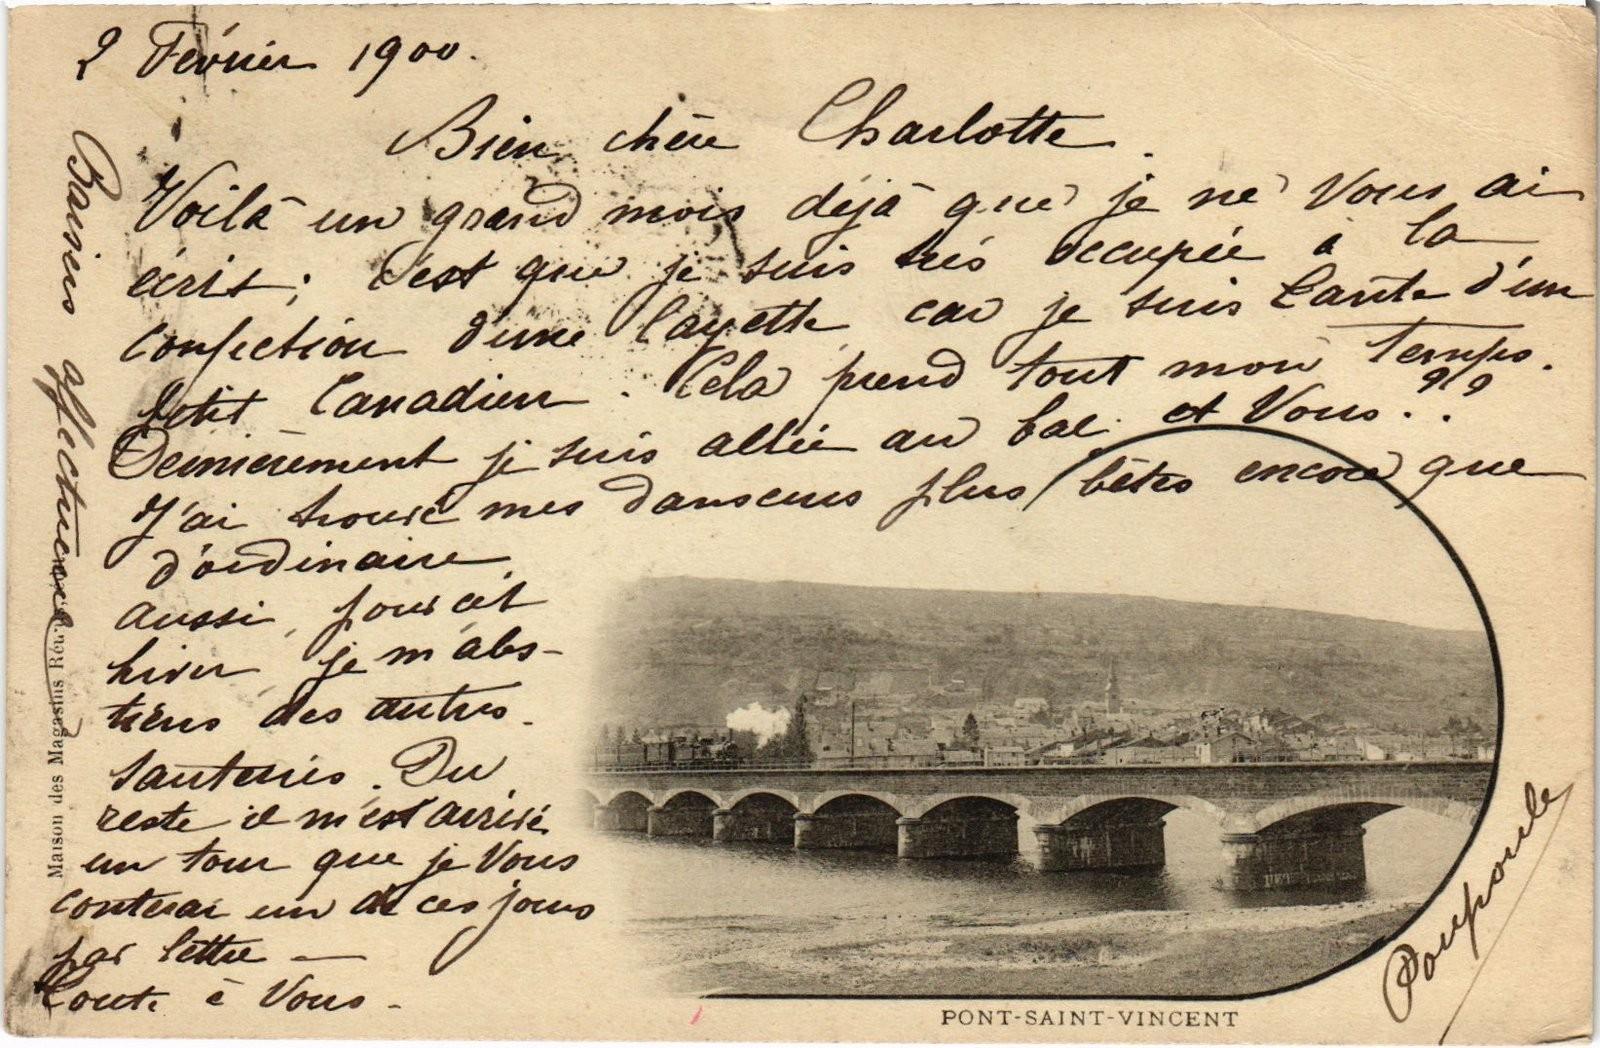 2 Février 1900.
Bien chère Charlotte.
Voilà un grand mois déjà que je ne Vous ai
écrit; c'est que je suis très occupée à la
confection d'une layette car je suis tante d'un
petit Canadien. Cela prend tout mon temps.
Dernièrement je suis allée au bal. et Vous??
J'ai trouvé mes danseurs plus bêtes encore que
d'ordinaire
aussi, pour cet
hiver je m'abs-
tiens des autres
sauteries. Du
reste il m'est arrivé
un tour que je Vous
conterai un de ces jours
par lettre —
Toute à Vous -
Poupoule
Baisers affectueux
Maison des Magasins Réu
PONT-SAINT-VINCENT